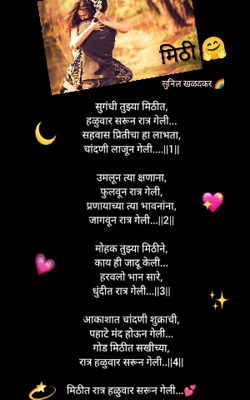 मिठी 🤗
सुनिल खळदकर 🌈
सुगंधी तुझ्या मिठीत,
हळुवार सरून रात्र गेली...
सहवास प्रितीचा हा लाभता,
चांदणी लाजून गेली....||1||
उमलून त्या क्षणाना,
फुलवून रात्र गेली,
प्रणायाच्या त्या भावनांना,
जागवून रात्र गेली...||2||
मोहक तुझ्या मिठीने,
काय ही जादू केली...
हरवलो भान सारे,
धुंदीत रात्र गेली...||3||
आकाशात चांदणी शुक्राची,
पहाटे मंद होऊन गेली...
गोड मिठीत सखीच्या,
रात्र हळुवार सरून गेली..||4||
मिठीत रात्र हळुवार सरून गेली...💕